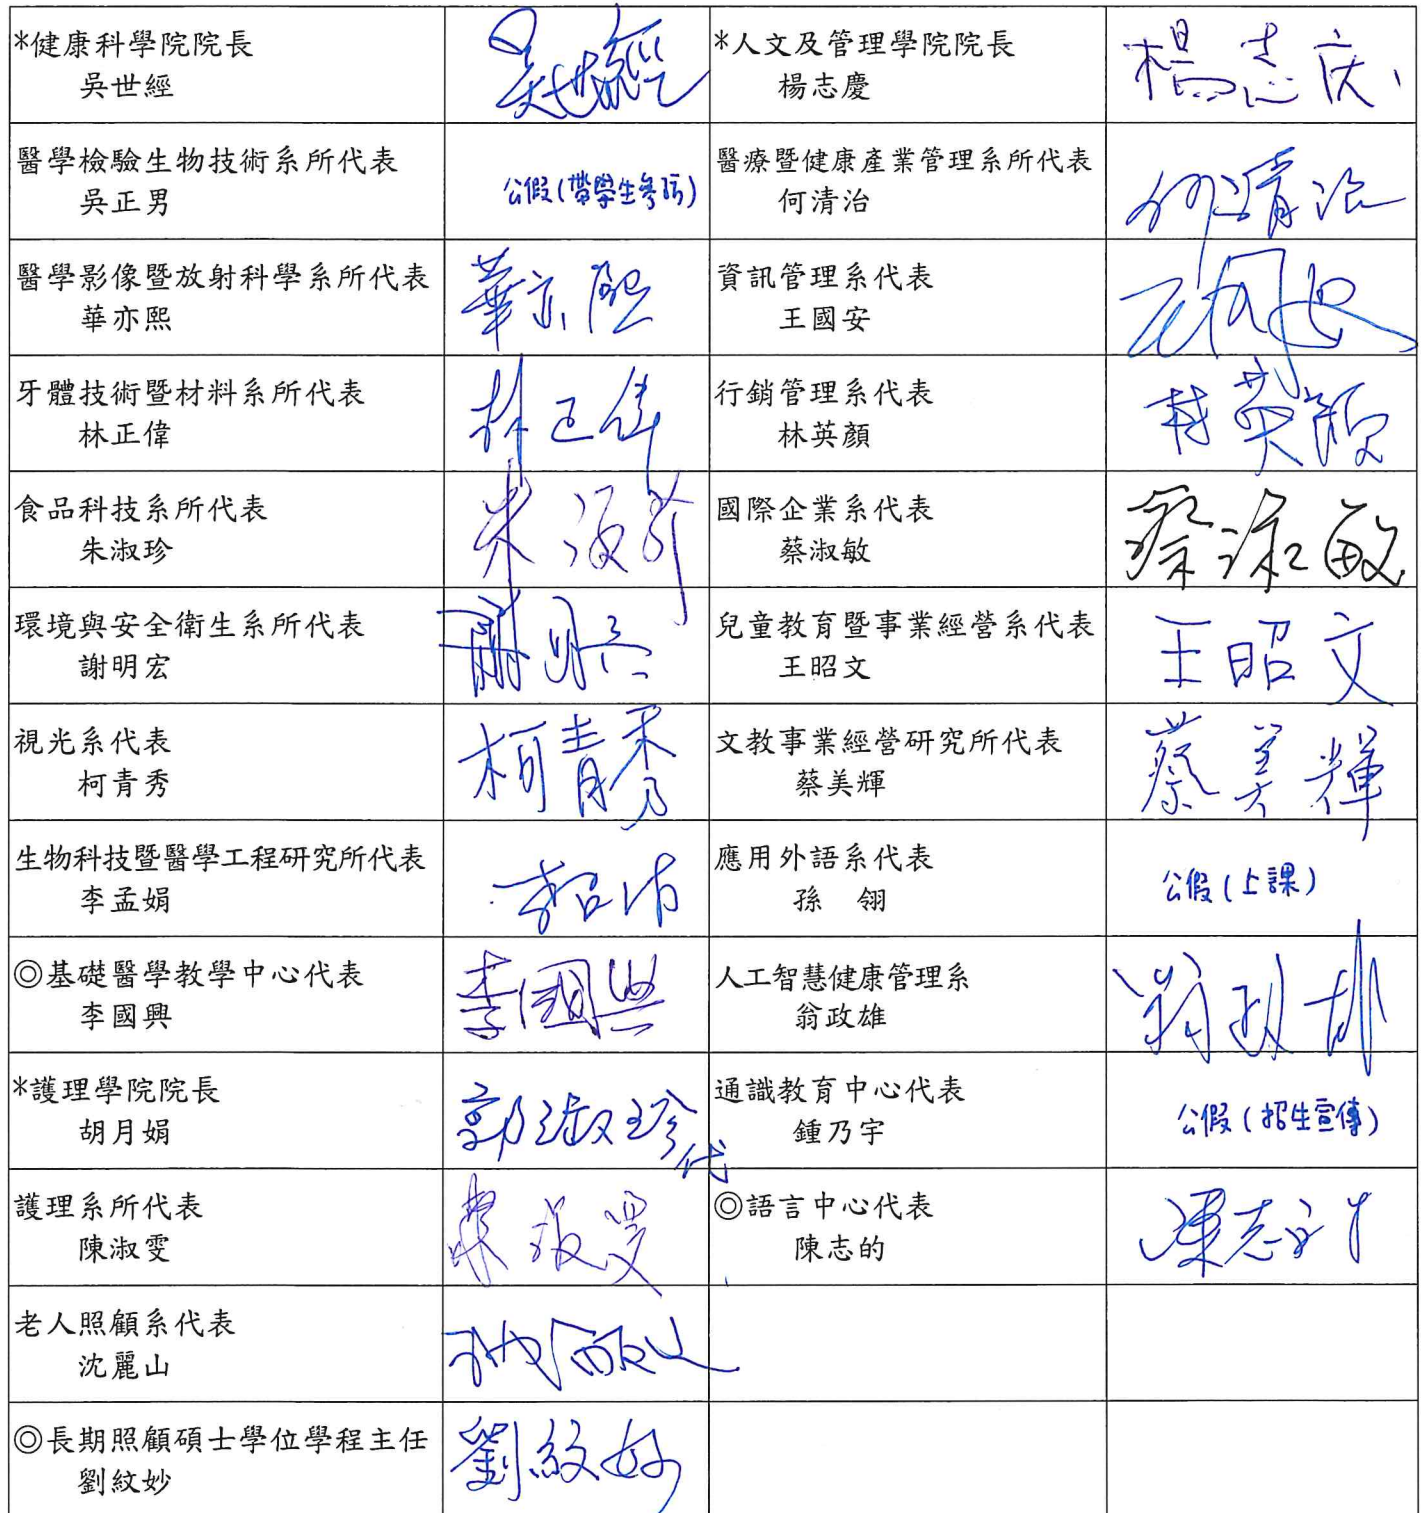 *健康科學院院長
吳世經
吳世經
*人文及管理學院院長
楊志慶
楊志庆
醫學檢驗生物技術系所代表
吳正男
公假(帶學生參訪)
醫療暨健康產業管理系所代表
何清治
何清治
醫學影像暨放射科學系所代表
華亦熙
華亦熙
資訊管理系代表
王國安
牙體技術暨材料系所代表
林正偉
林正偉
行銷管理系代表
林英顏
林英顏
食品科技系所代表
朱淑珍
朱淑珍
國際企業系代表
蔡淑敏
蔡淑敏
環境與安全衛生系所代表
謝明宏
謝明宏
兒童教育暨事業經營系代表
王昭文
王昭文
視光系代表
柯青秀
柯青秀
文教事業經營研究所代表
蔡美輝
蔡美輝
生物科技暨醫學工程研究所代表
李孟娟
應用外語系代表
孫　翎
公假(上課)
◎基礎醫學教學中心代表
李國興
李國興
人工智慧健康管理系
翁政雄
翁政雄
*護理學院院長
胡月娟
郭淑珍代
通識教育中心代表
鍾乃宇
公假(招生宣傳)
護理系所代表
陳淑雯
陳淑雯
◎語言中心代表
陳志的
陳志的
老人照顧系代表
沈麗山
◎長期照顧碩士學位學程主任
劉紋妙
劉紋妙